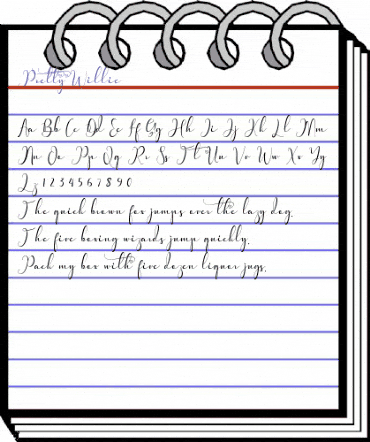 Pretty Willie
Aa Bb Cc Dd Ee Ff Gg Hh Ii Jj Kk Ll Mm
Nn Oo Pp Qq Rr Ss Tt Uu Vv Ww Xx Yy
Zz 1 2 3 4 5 6 7 8 9 0
The quick brown fox jumps over the lazy dog.
The five boxing wizards jump quickly.
Pack my box with five dozen liquor jugs.